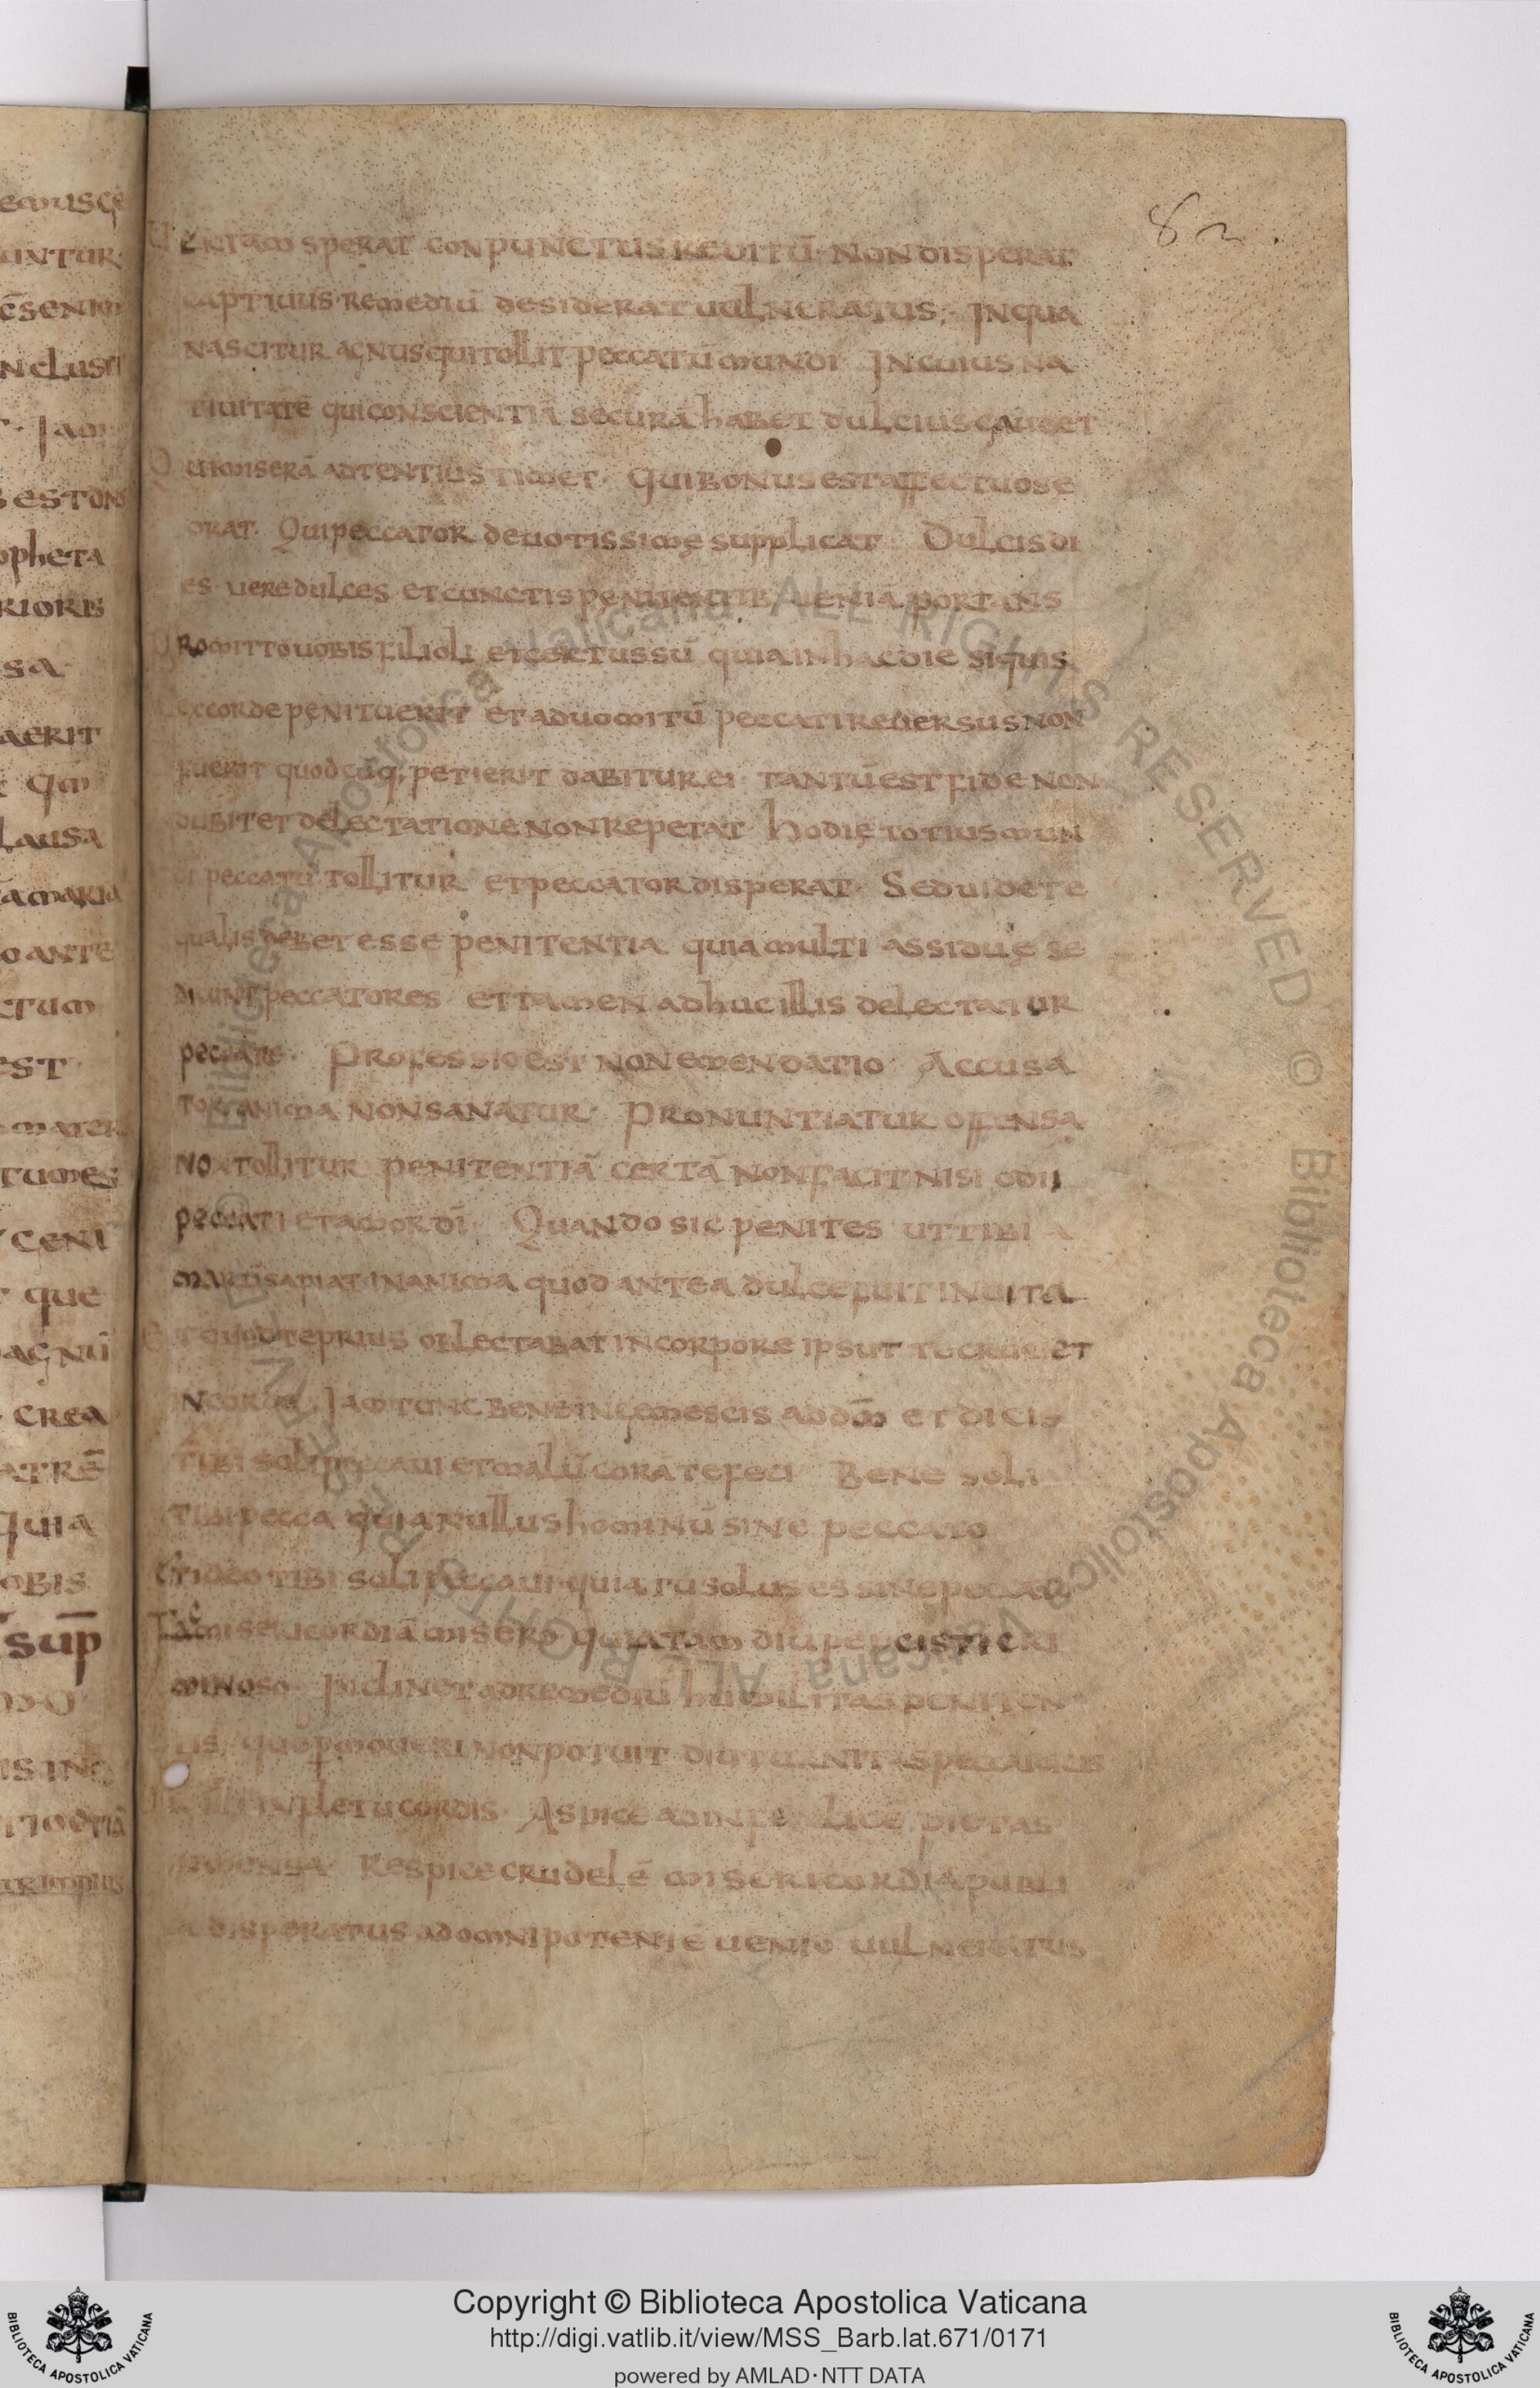 82.
ueniam sperat conpunctus reditū. Non disperat
captiuus. remediū desiderat uulneratus; In qua
nascitur agnus qui tollit peccatū mundi In cuius na
tiuitatē qui conscientiā securā habet dulcius gaudet
Qui miserā adtentius timet. Qui bonus est affectuose
orat. Qui peccator deuotissime supplicat Dulcis di
es. uere dulces. et cunctis penitentib; ueniā portans
Promitto uobis filioli et certus sū quia in hac die si quis
ex corde penituerit et ad uomitū peccati reuersus non
fuerit quodcūq; petierit dabitur ei. tantū est fide non
dubitet delectatione non repetat hodie totius mun
di peccatū tollitur et peccator disperat. Sed uidete
qualis debet esse penitentia quia multi assidue se
dicunt peccatores et tamen adhuc illis delectatur
peccare. Professio est non emendatio. Accusa
tur anima non sanatur. Pronuntiatur offensa
non tollitur penitentiā certā non facit nisi odiū
peccati et amor dī Quando sic penites ut tibi a
marū sapiat in anima quod antea dulce fuit in uita
Et quod te prius oblectabat in corpore ipsut te cruciet
in corde. Iam tunc bene ingemescis ad dm̄ et dicis
tibi soli peccaui et malū corā te feci Bene soli
tibi pecca quia nullus hominū sine peccato
Et ideo tibi soli peccaui quia tu solus es sine peccato
misericordiā misero quia tam diu pepcisti cri
minoso. Inclinet ad remediū humilitas peniten
tis, quē p̄mouere non potuit
fletū cordis. Aspice ad infelicē pietas
inmensa. Respice crudelē misericordia publi
ca disperatus ad omnipotentē uenio uulneratus
emusce
untur
ēs enim
nclusa
. Iam
est dn̄s
opheta
riorib
sa
aerit
qm̄
lausa
a maria
o ante
ctum
est
mater
tumes
ceni
que
agnū
crea
atrē
quia
obis
sup̄
is inc
Copyright © Biblioteca Apostolica Vaticana
http://digi.vatlib.it/view/MSS_Barb.lat.671/0171
powered by AMLAD·NTT DATA
BIBLIOTECA APOSTOLICA VATICANA
BIBLIOTECA APOSTOLICA VATICANA
© Biblioteca Apostolica Vaticana ALL RIGHTS RESERVED © Biblioteca Apostolica Vaticana ALL RIGHTS RESERVED